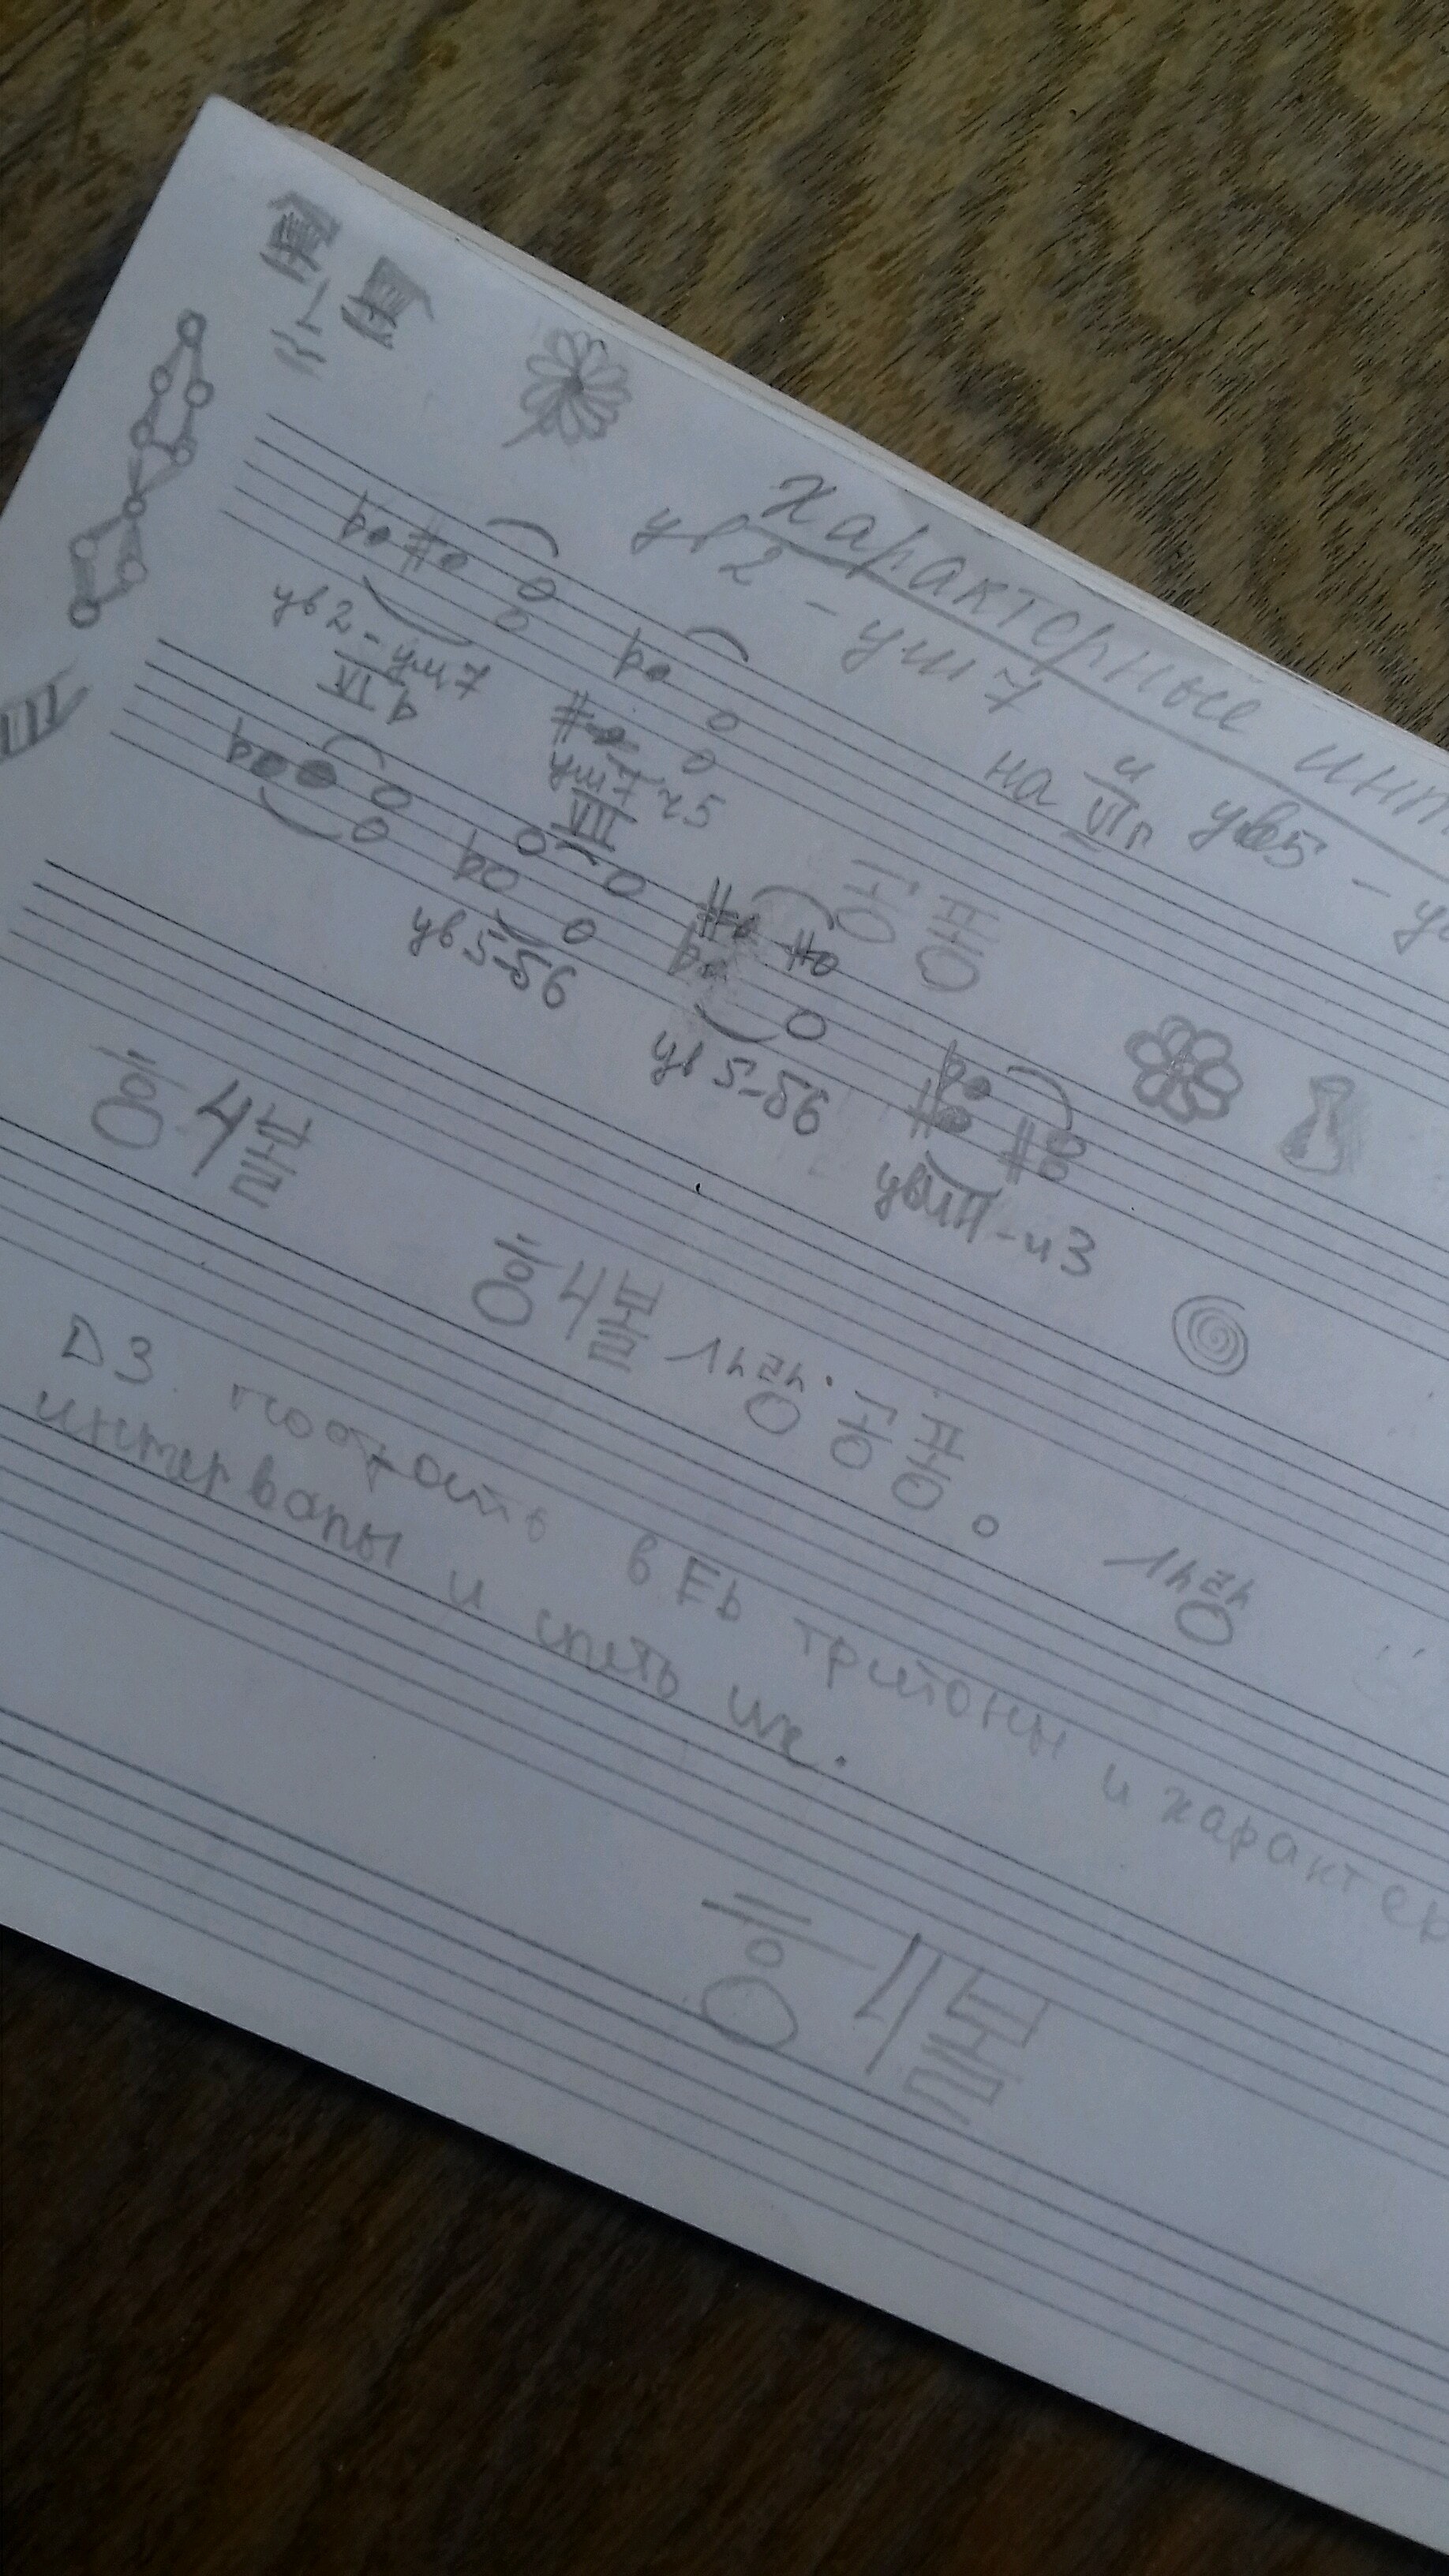 характерные инт
ув2 - ум7 на VIг и ув5 - у
ув2 - ум7 ум7 ч5
VI b VII
공 퐁
ув5-б6 ув5-б6 -ч3
흥 4 볼
흥 4 볼 사랑 · 공 퐁 。 사랑
D3 построить в Eb тритоны и характер
интервалы и спеть их.
흥 4 볼